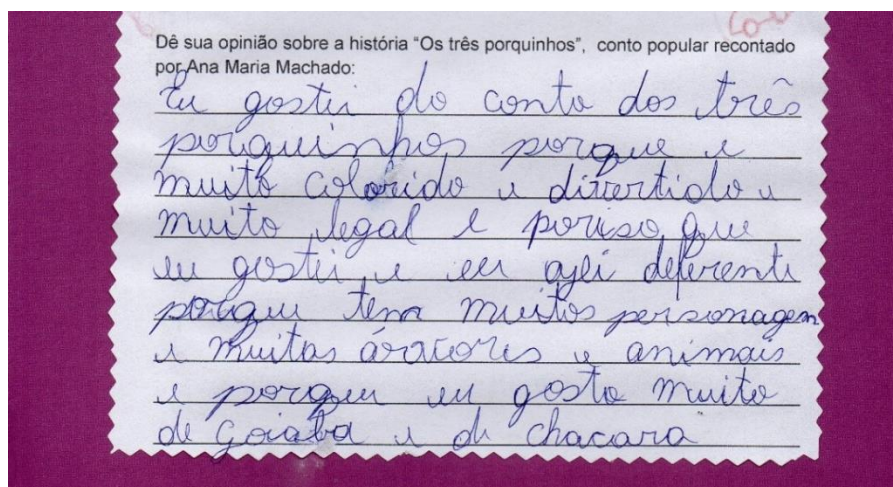 Dê sua opinião sobre a história "Os três porquinhos", conto popular recontado
por Ana Maria Machado:
Eu gostei do conto dos três
porquinhos porque e
muito colorido e divertido e
muito legal e poriso que
eu gostei e eu ajei deferente
porque tem muitos personagem
e muitas áravores e animais
e porque eu gosto muito
de goiaba e de chacara